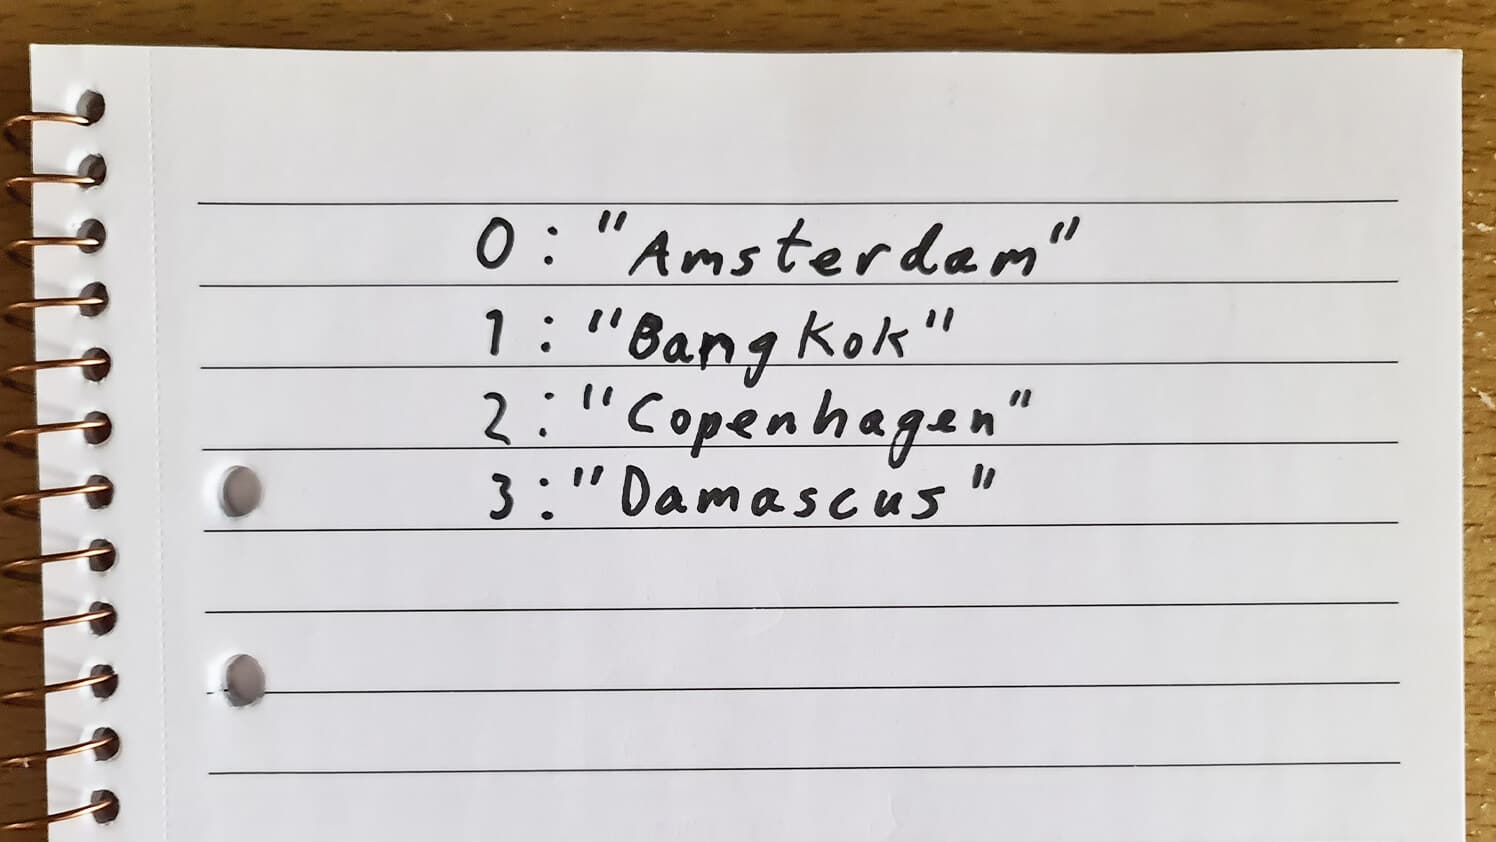 0: "Amsterdam"
1: "Bangkok"
2: "Copenhagen"
3: "Damascus"